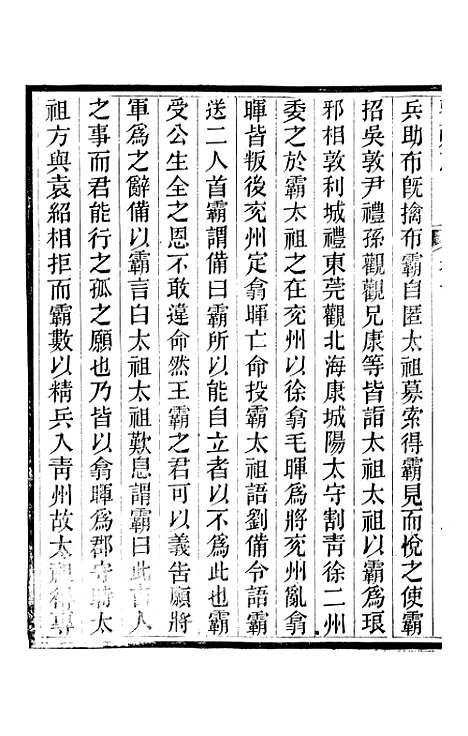 兵助布既擒布霸自匿太祖募索得霸見而悅之使霸
招吳敦尹禮孫觀觀兄康等皆詣太祖以霸爲琅
邪相敦利城禮東莞觀北海康城陽太守割靑徐二州
委之於霸太祖之在兖州以徐翕毛暉爲將兖州亂翕
暉皆叛後兖州定翕暉亡命投霸太祖語劉備令語霸
送二人首霸謂備曰霸所以能自立者以不爲此也霸
受公生全之恩不敢違命然王霸之君可以義告願將
軍爲之辭備以霸言白太祖太祖歎息謂霸曰此古人
之事而君能行之孤之願也乃皆以翕暉爲郡守時太
祖方與袁紹相拒而霸數以精兵入靑州故太祖得專